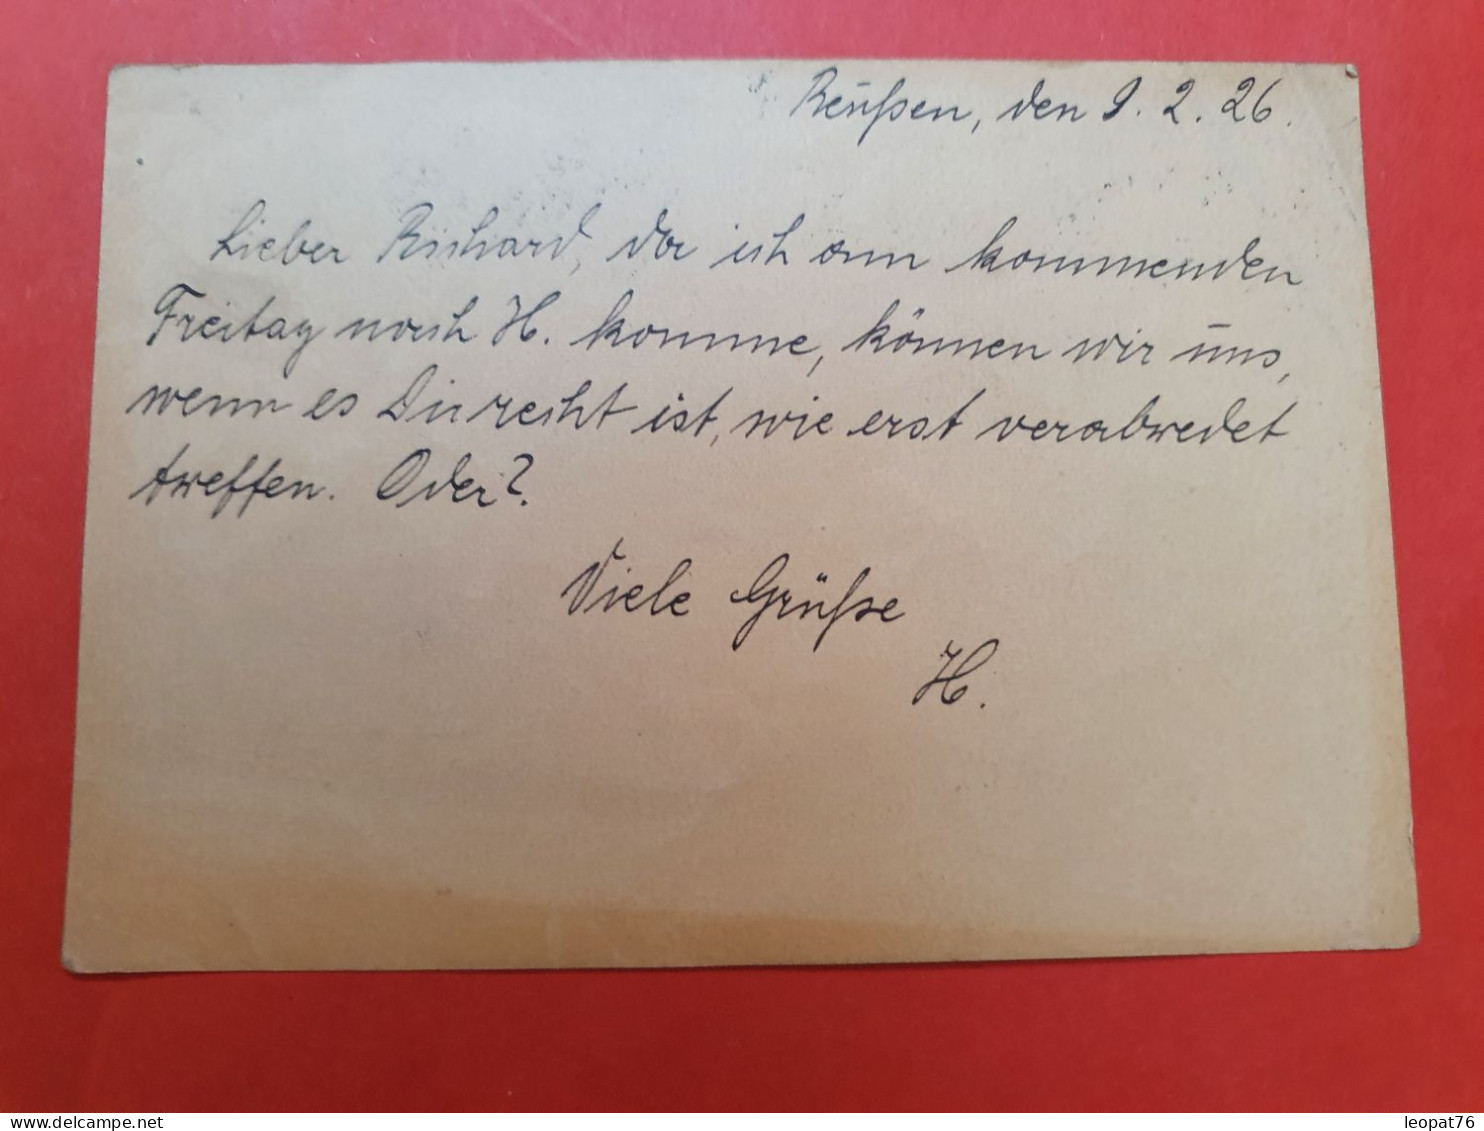 Reußen, den 9. 2. 26.
Lieber Richard, da ich am kommenden
Freitag nach H. komme, können wir uns,
wenn es Dir recht ist, wie erst verabredet
treffen. Oder?
Viele Grüße
H.
leopat76